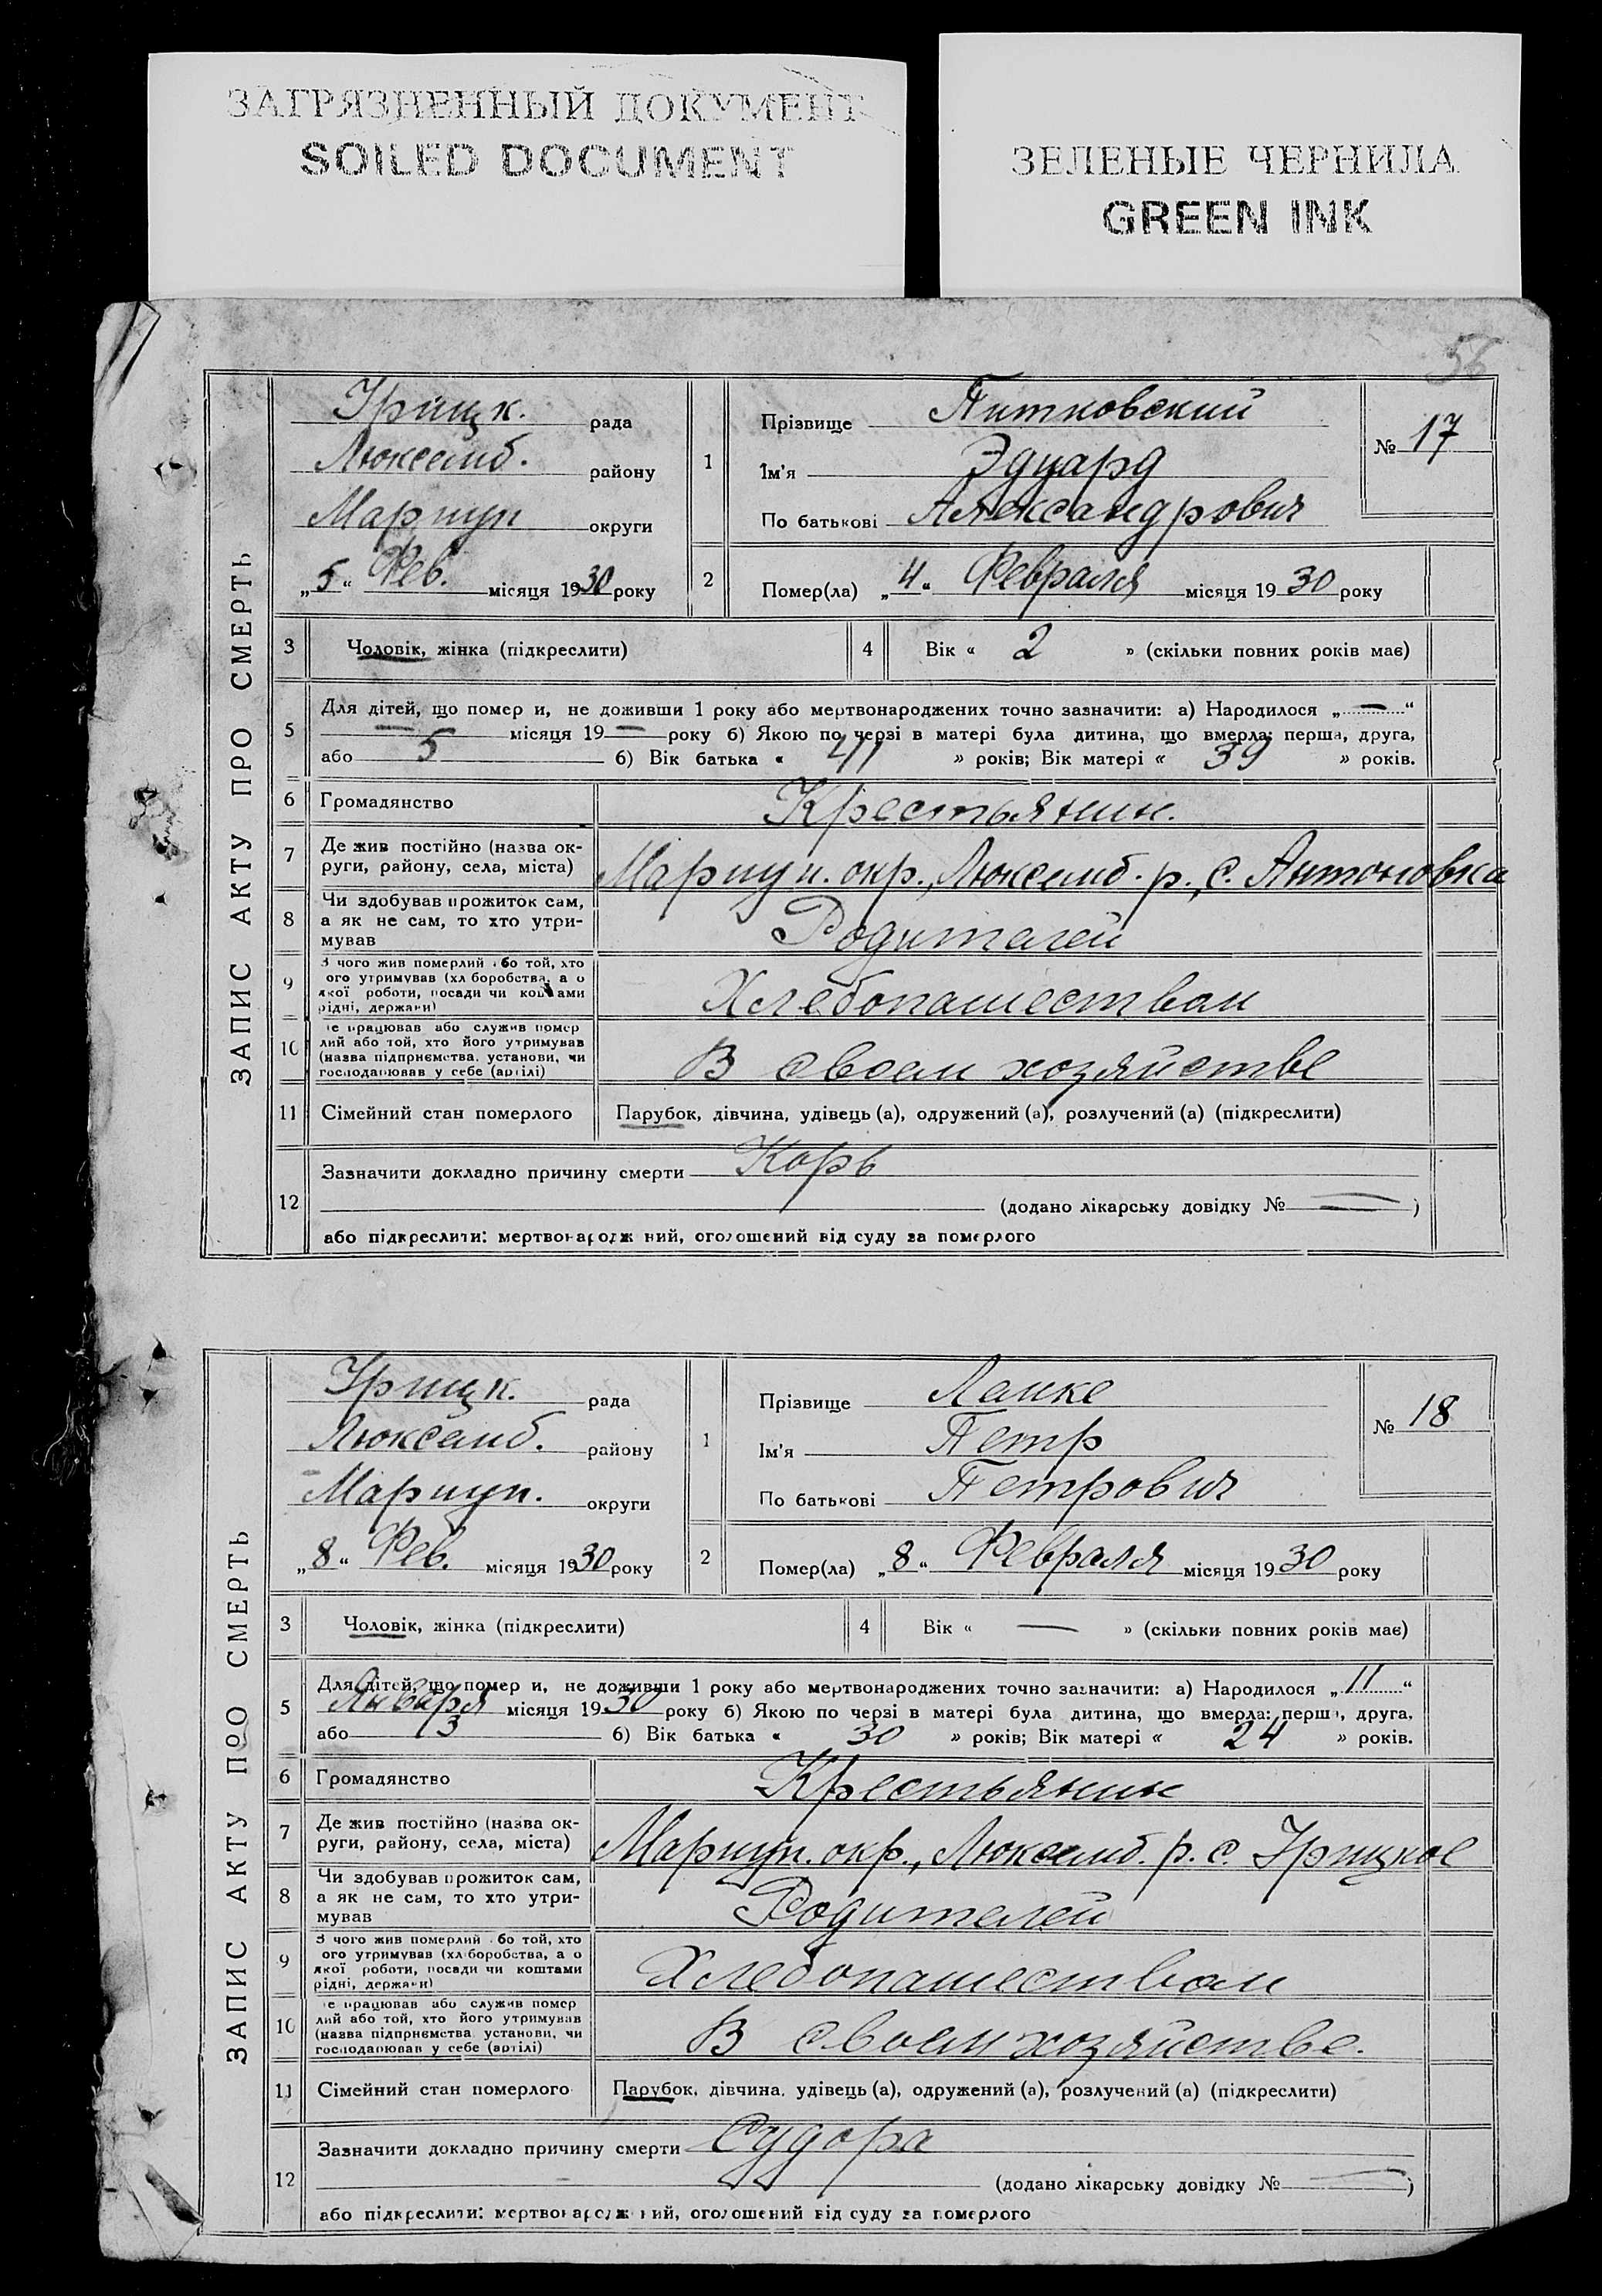 ЗАГРЯЗНЕННЫЙ ДОКУМЕНТ
SOILED DOCUMENT
ЗЕЛЕНЫЕ ЧЕРНИЛА
GREEN INK
56
ЗАПИС АКТУ ПРО СМЕРТЬ
Урицк. рада
Люксемб. району
Мариуп округи
„5“ Фев. місяця 1930 року
1
Прізвище Питковский
Ім'я Эдуард
По батькові Александрович
№ 17
2 Помер(ла) „4“ Февраля місяця 1930 року
3 Чоловік, жінка (підкреслити)
4 Вік « 2 » (скільки повних років має)
5 Для дітей, що помер и, не доживши 1 року або мертвонароджених точно зазначити: а) Народилося „—“
— місяця 19— року б) Якою по черзі в матері була дитина, що вмерла: перша, друга,
або 5 б) Вік батька « 41 » років; Вік матері « 39 » років.
6 Громадянство Крестьянин.
7 Де жив постійно (назва ок-
руги, району, села, міста) Мариуп. окр., Люксемб. р., с. Антоновка
8 Чи здобував прожиток сам,
а як не сам, то хто утри-
мував Родителей
9 З чого жив померлий або той, хто
ого утримував (хл боробства, а о
якої роботи, посади чи коштами
рідні, держави) Хлебопашеством
10 е працював або служив помер
лий або той, хто його утримував
(назва підприємства, установи, чи
господарював у себе (артілі) В своем хозяйстве
11 Сімейний стан померлого Парубок, дівчина, удівець (а), одружений (а), розлучений (а) (підкреслити)
12 Зазначити докладно причину смерти Корь
(додано лікарську довідку № — )
або підкреслити: мертвонародж ний, оголошений від суду за померлого
ЗАПИС АКТУ ПРО СМЕРТЬ
Урицк. рада
Люксемб. району
Мариуп. округи
„8“ Фев. місяця 1930 року
1
Прізвище Лемке
Ім'я Петр
По батькові Петрович
№ 18
2 Помер(ла) „8“ Февраля місяця 1930 року
3 Чоловік, жінка (підкреслити)
4 Вік « — » (скільки повних років має)
5 Для дітей, що помер и, не доживши 1 року або мертвонароджених точно зазначити: а) Народилося „11“
Января місяця 1930 року б) Якою по черзі в матері була дитина, що вмерла: перша, друга,
або 3 б) Вік батька « 30 » років; Вік матері « 24 » років.
6 Громадянство Крестьянин
7 Де жив постійно (назва ок-
руги, району, села, міста) Мариуп. окр., Люксемб. р. с. Урицкое
8 Чи здобував прожиток сам,
а як не сам, то хто утри-
мував Родителей
9 З чого жив померлий або той, хто
ого утримував (хл боробства, а о
якої роботи, посади чи коштами
рідні, держави) Хлебопашеством
10 е працював або служив помер
лий або той, хто його утримував
(назва підприємства, установи, чи
господарював у себе (артілі) В своем хозяйстве.
11 Сімейний стан померлого Парубок, дівчина, удівець (а), одружений (а), розлучений (а) (підкреслити)
12 Зазначити докладно причину смерти Судора
(додано лікарську довідку № — )
або підкреслити: мертвонародж ний, оголошений від суду за померлого